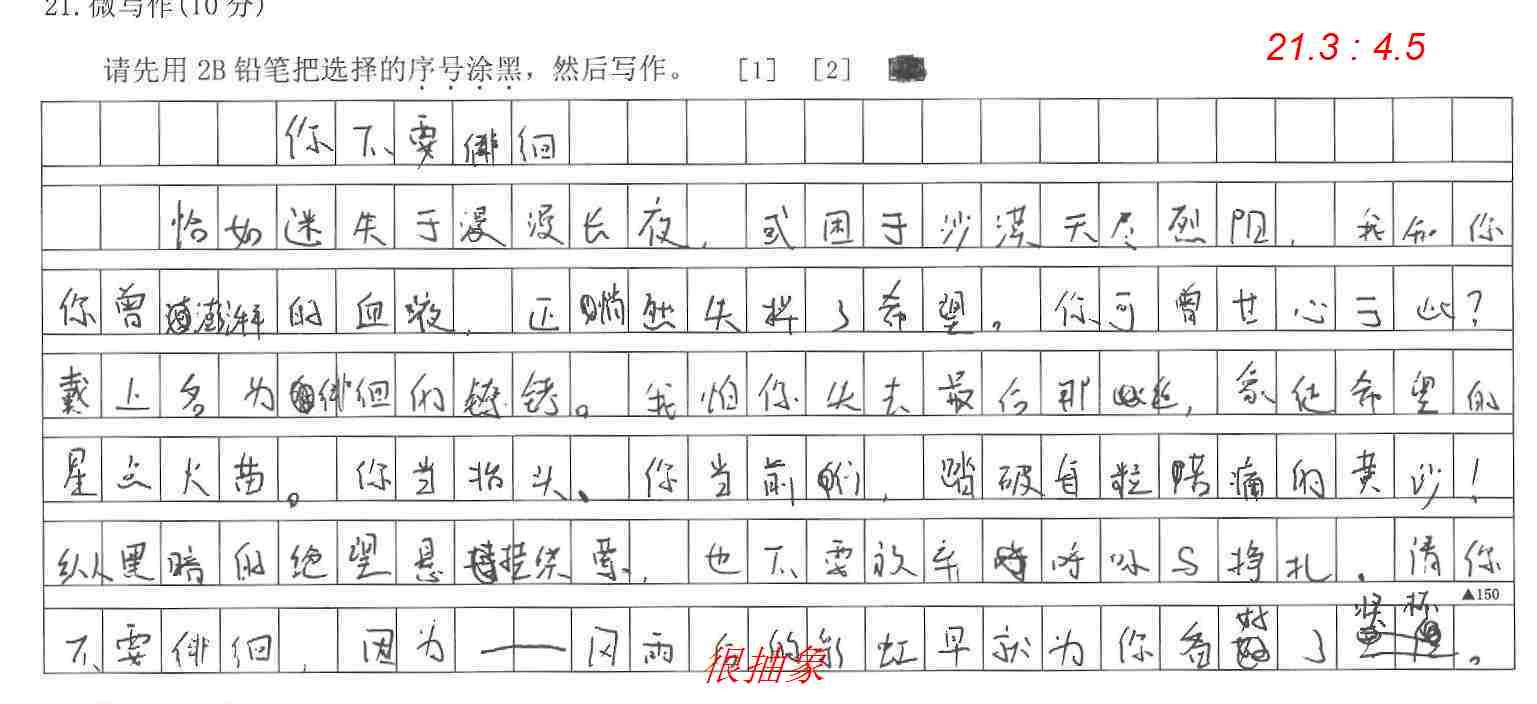 21.微写作(10分)
21.3 : 4.5
请先用 2B 铅笔把选择的序号涂黑，然后写作。 [1] [2]
你不要徘徊
恰如迷失于漫漫长夜，或困于沙漠天尽烈阳，我知你
你曾澎湃的血液，正悄然失掉了希望。你可曾甘心于此？
戴上名为徘徊的镣铐。我怕你失去最后那丝，象征希望的
星点火苗。你当抬头、你当前行，踏破自粒阵痛的黄沙！
纵黑暗的绝望悬挂萦，也不要放弃呼吸与挣扎。请你
▲150
不要徘徊，因为——风雨后的彩虹早就为你备好了奖杯。
很抽象